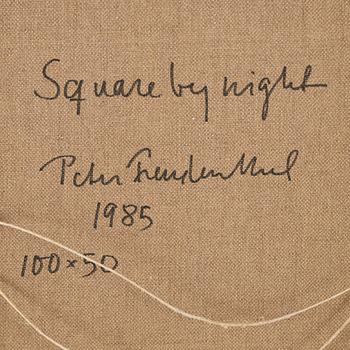 Square by night
Peter Freudenthal
1985
100×50